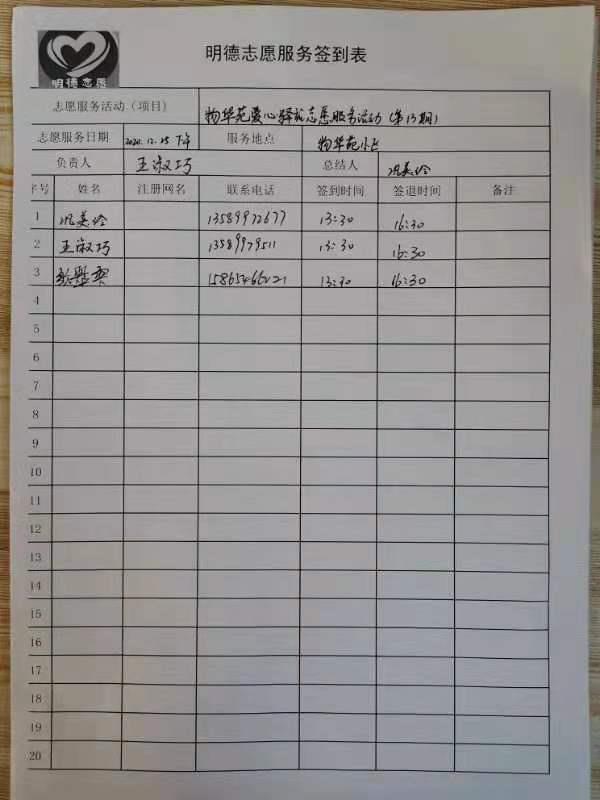 明德志愿
明德志愿服务签到表
志愿服务活动（项目） 物华苑爱心驿站志愿服务活动（第13期）
志愿服务日期 2020.12.25 下午 服务地点 物华苑小区
负责人 王淑巧 总结人
序号 姓名 注册网名 联系电话 签到时间 签退时间 备注
1 13589972677 13:30 16:30
2 王淑巧 13589979511 13:30 16:30
3 13:30 16:30
4
5
6
7
8
9
10
11
12
13
14
15
16
17
18
19
20